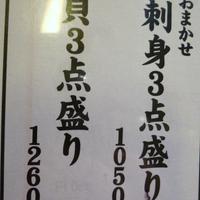 おまかせ
刺身3点盛り
1050
貝3点盛り
1260